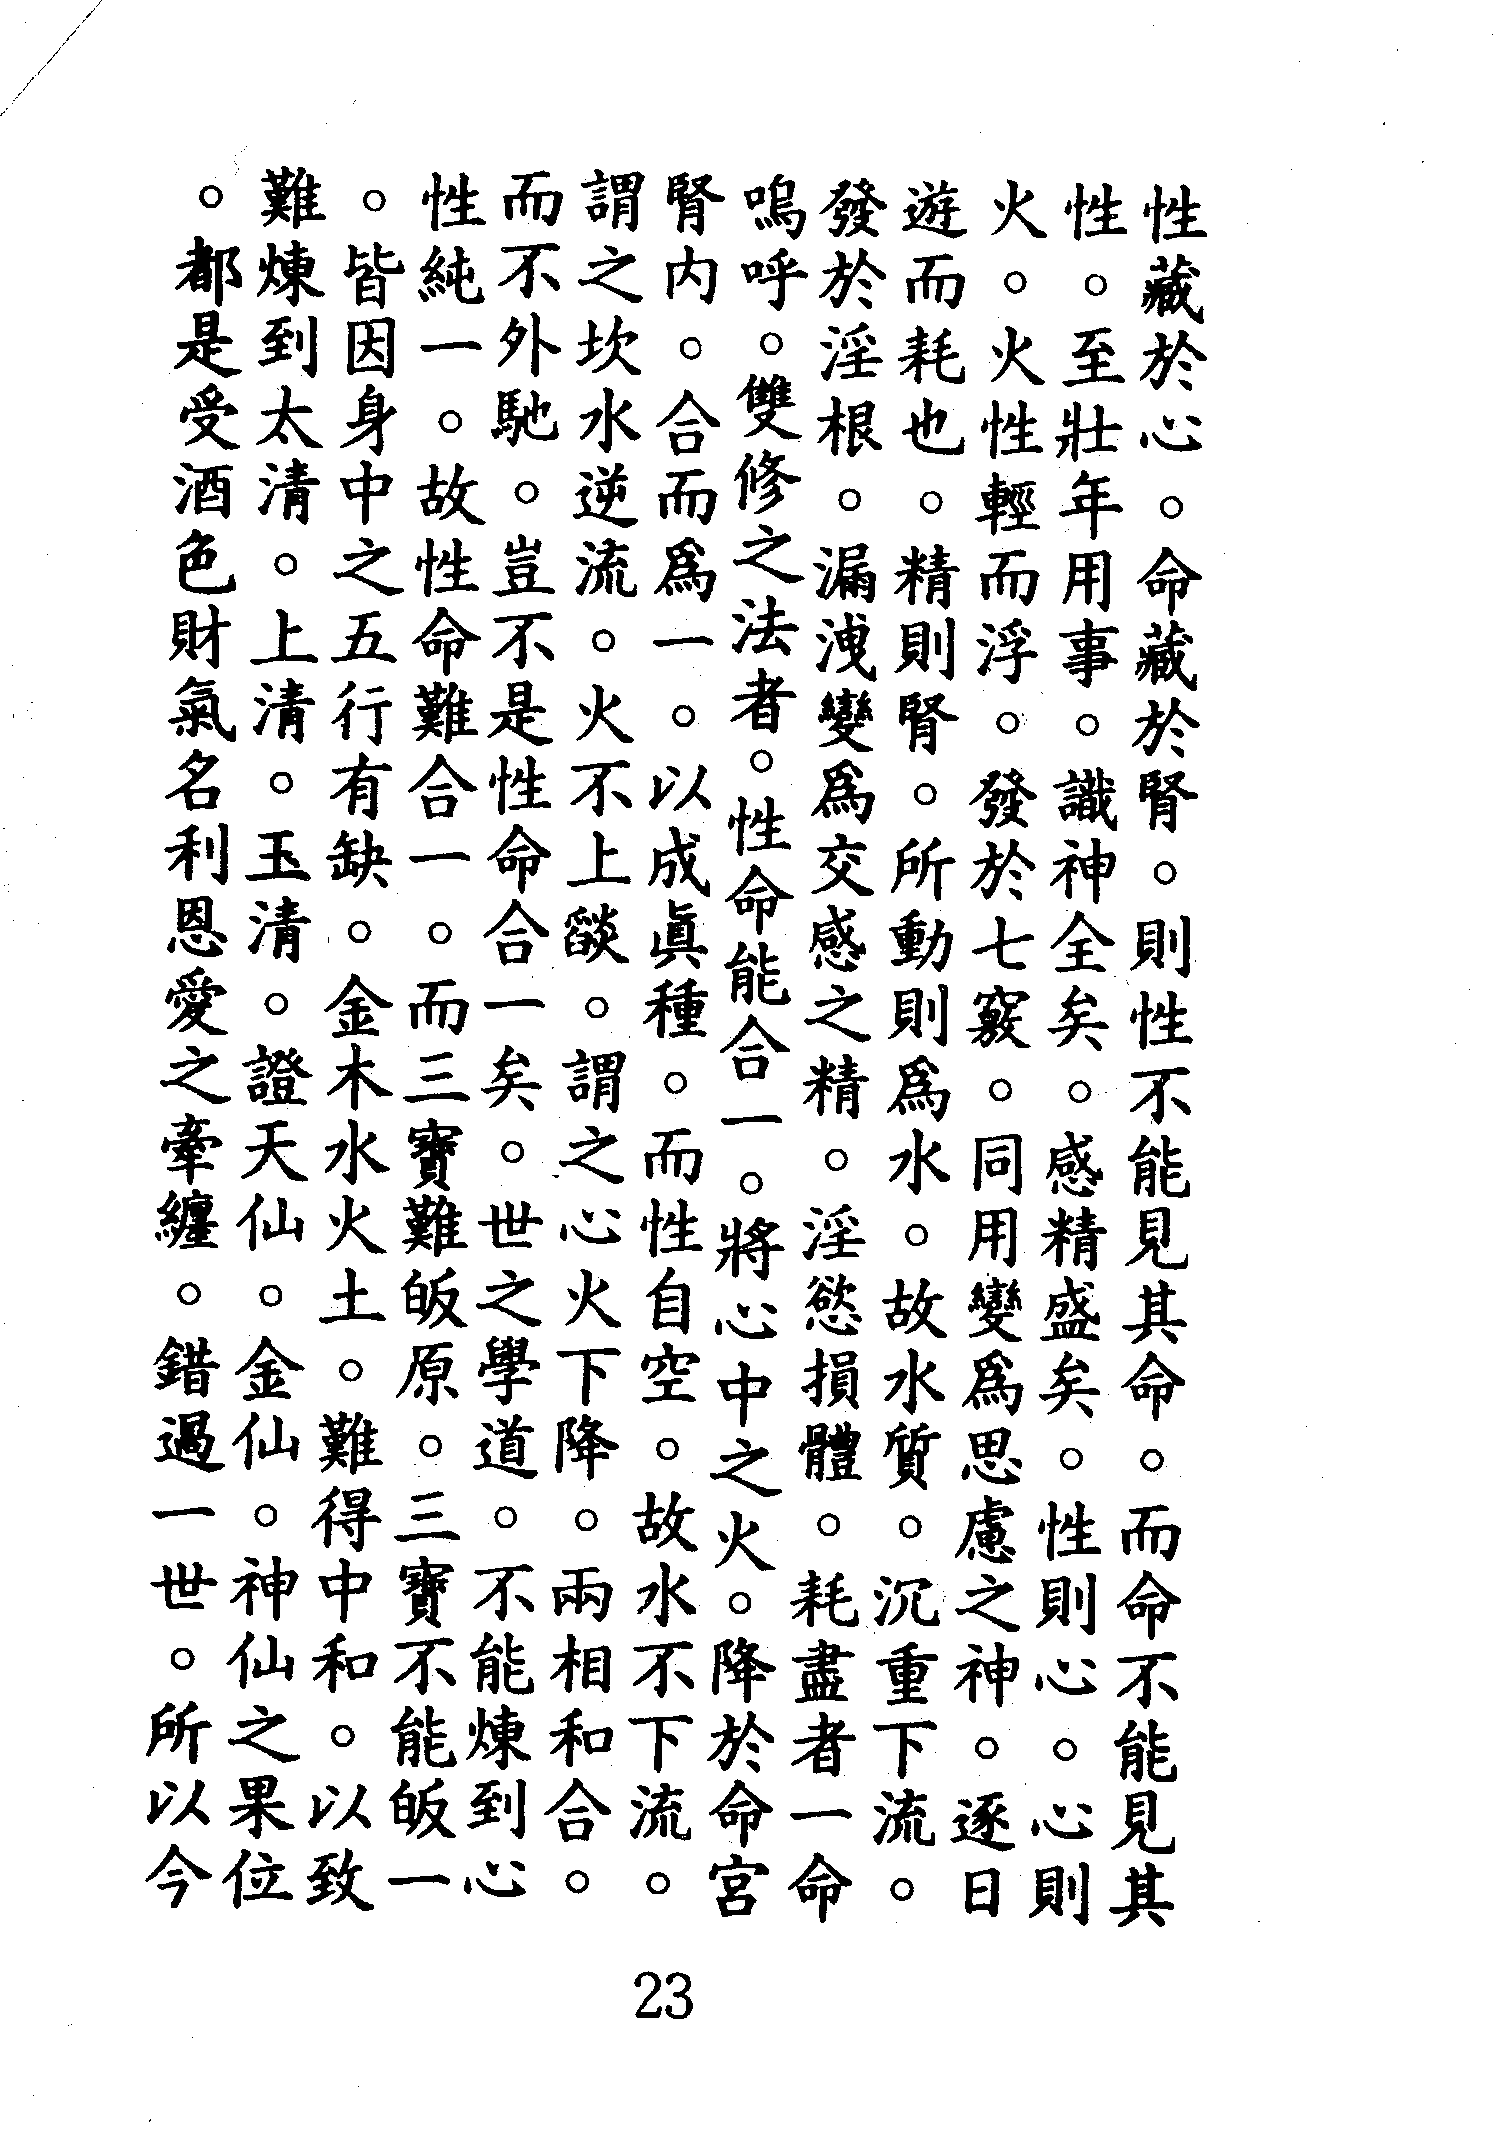 性藏於心。命藏於腎。則性不能見其命。而命不能見其
性。至壯年用事。識神全矣。感精盛矣。性則心。心則
火。火性輕而浮。發於七竅。同用變為思慮之神。逐日
遊而耗也。精則腎。所動則為水。故水質。沉重下流。
發於淫根。漏洩變為交感之精。淫慾損體。耗盡者一命
嗚呼。雙修之法者。性命能合一。將心中之火。降於命宮
腎內。合而為一。以成眞種。而性自空。故水不下流。
謂之坎水逆流。火不上燄。謂之心火下降。兩相和合。
而不外馳。豈不是性命合一矣。世之學道。不能煉到心
性純一。故性命難合一。而三寶難皈原。三寶不能皈一
。皆因身中之五行有缺。金木水火土。難得中和。以致
難煉到太清。上清。玉清。證天仙。金仙。神仙之果位
。都是受酒色財氣名利恩愛之牽纏。錯過一世。所以今
23